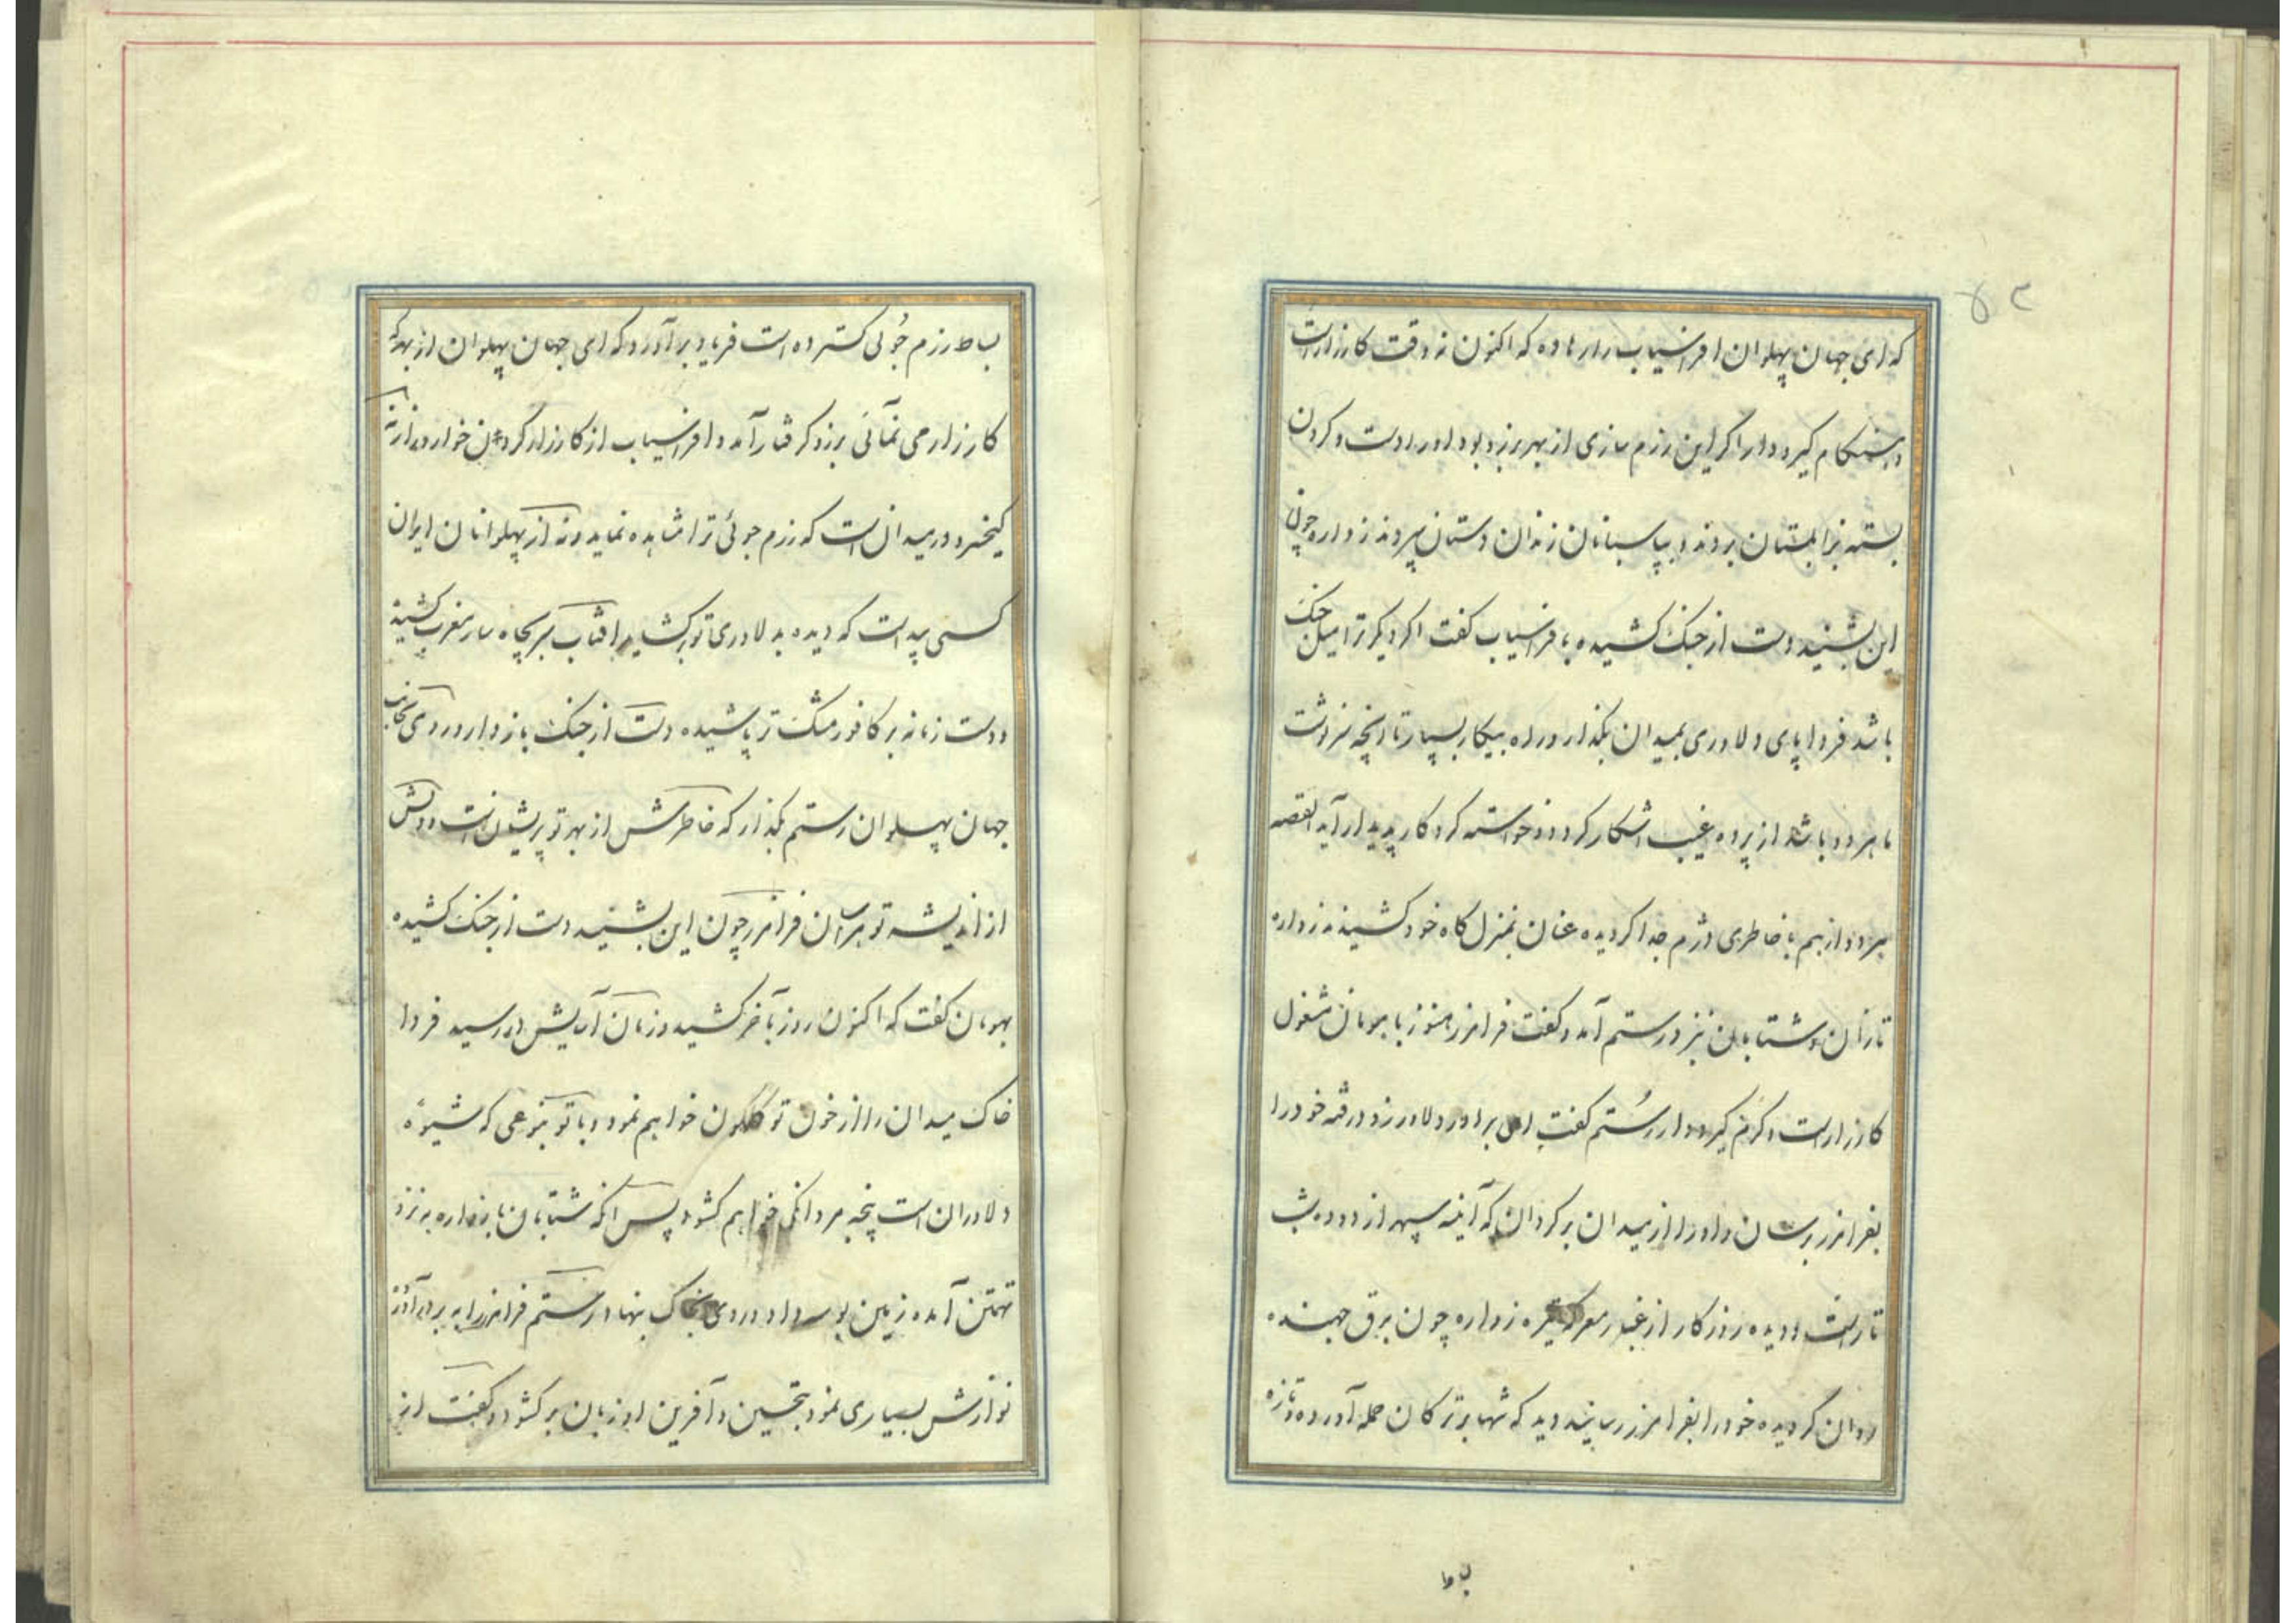 ۵۲
که ای جهان پهلوان افراسیاب را رها ده که اکنون نه وقت کارزار است
و هنگام گیرودار اگر این رزم سازی از بهر برزو بود او را دست و گردن
بسته بزابلستان بردند و بپاسبانان زندان دستان سپردند زواره چون
این بشنید دست از جنک کشیده بافراسیاب گفت اگر دیگر ترا میل جنک
باشد فردا پای دلاوری بمیدان بگذار و راه پیکار بسپار تا آنچه سرنوشت
ما هر دو باشد از پرده غیب اشکار گردد و خواسته کردکار پدیدار آید القصه
هر دو از هم با خاطری دژم جدا گردیده عنان بمنزل گاه خود کشیدند زواره
تازان و شتابان نزد رستم آمد و گفت فرامرز هنوز با هومان مشغول
کارزار است و گرم گیرودار رستم گفت ای برادر دلاور زود رفته خود را
بفرامرز برسان و او را از میدان برگردان که آینه سپهر از دوده شب
تار است و دیده روزگار از غبار معرکه تیره زواره چون برق جهنده
روان گردیده خود را بفرامرز رسانید دید که تنها بر ترکان حمله آورده و تازه
بساط
بساط رزم جوئی گسترده است فریاد برآورد که ای جهان پهلوان از بهر که
کارزار می نمائی برزو گرفتار آمد و افراسیاب از کارزار کردن خوار و زار نه
کیخسرو در میدان است که رزم جوئی ترا مشاهده نماید و نه از پهلوانان ایران
کسی پیداست که دیده بدلاوری تو برگشاید افتاب سر بچاه سار مغرب کشید
و دست زمانه بر کافور مشگ تر پاشیده دست از جنک باز دار و روی بجانب
جهان پهلوان رستم بگذار که خاطرش از بهر تو پریشان است و دلش
از اندیشه تو هراسان فرامرز چون این بشنید دست از جنک کشیده
بهومان گفت که اکنون روز بآخر کشید و زمان آسایش در رسید فردا
خاک میدان را از خون تو گلگون خواهم نمود و با تو بنوعی که شیوه
دلاوران است پنجه مردانگی خواهم گشود پس آنکه شتابان با زواره به نزد
تهمتن آمده زمین بوسه داد و روی بخاک بنهاد رستم فرامرز را به بر در آورد
نوازش بسیاری نمود بتحسین و آفرین او زبان برگشود و گفت از